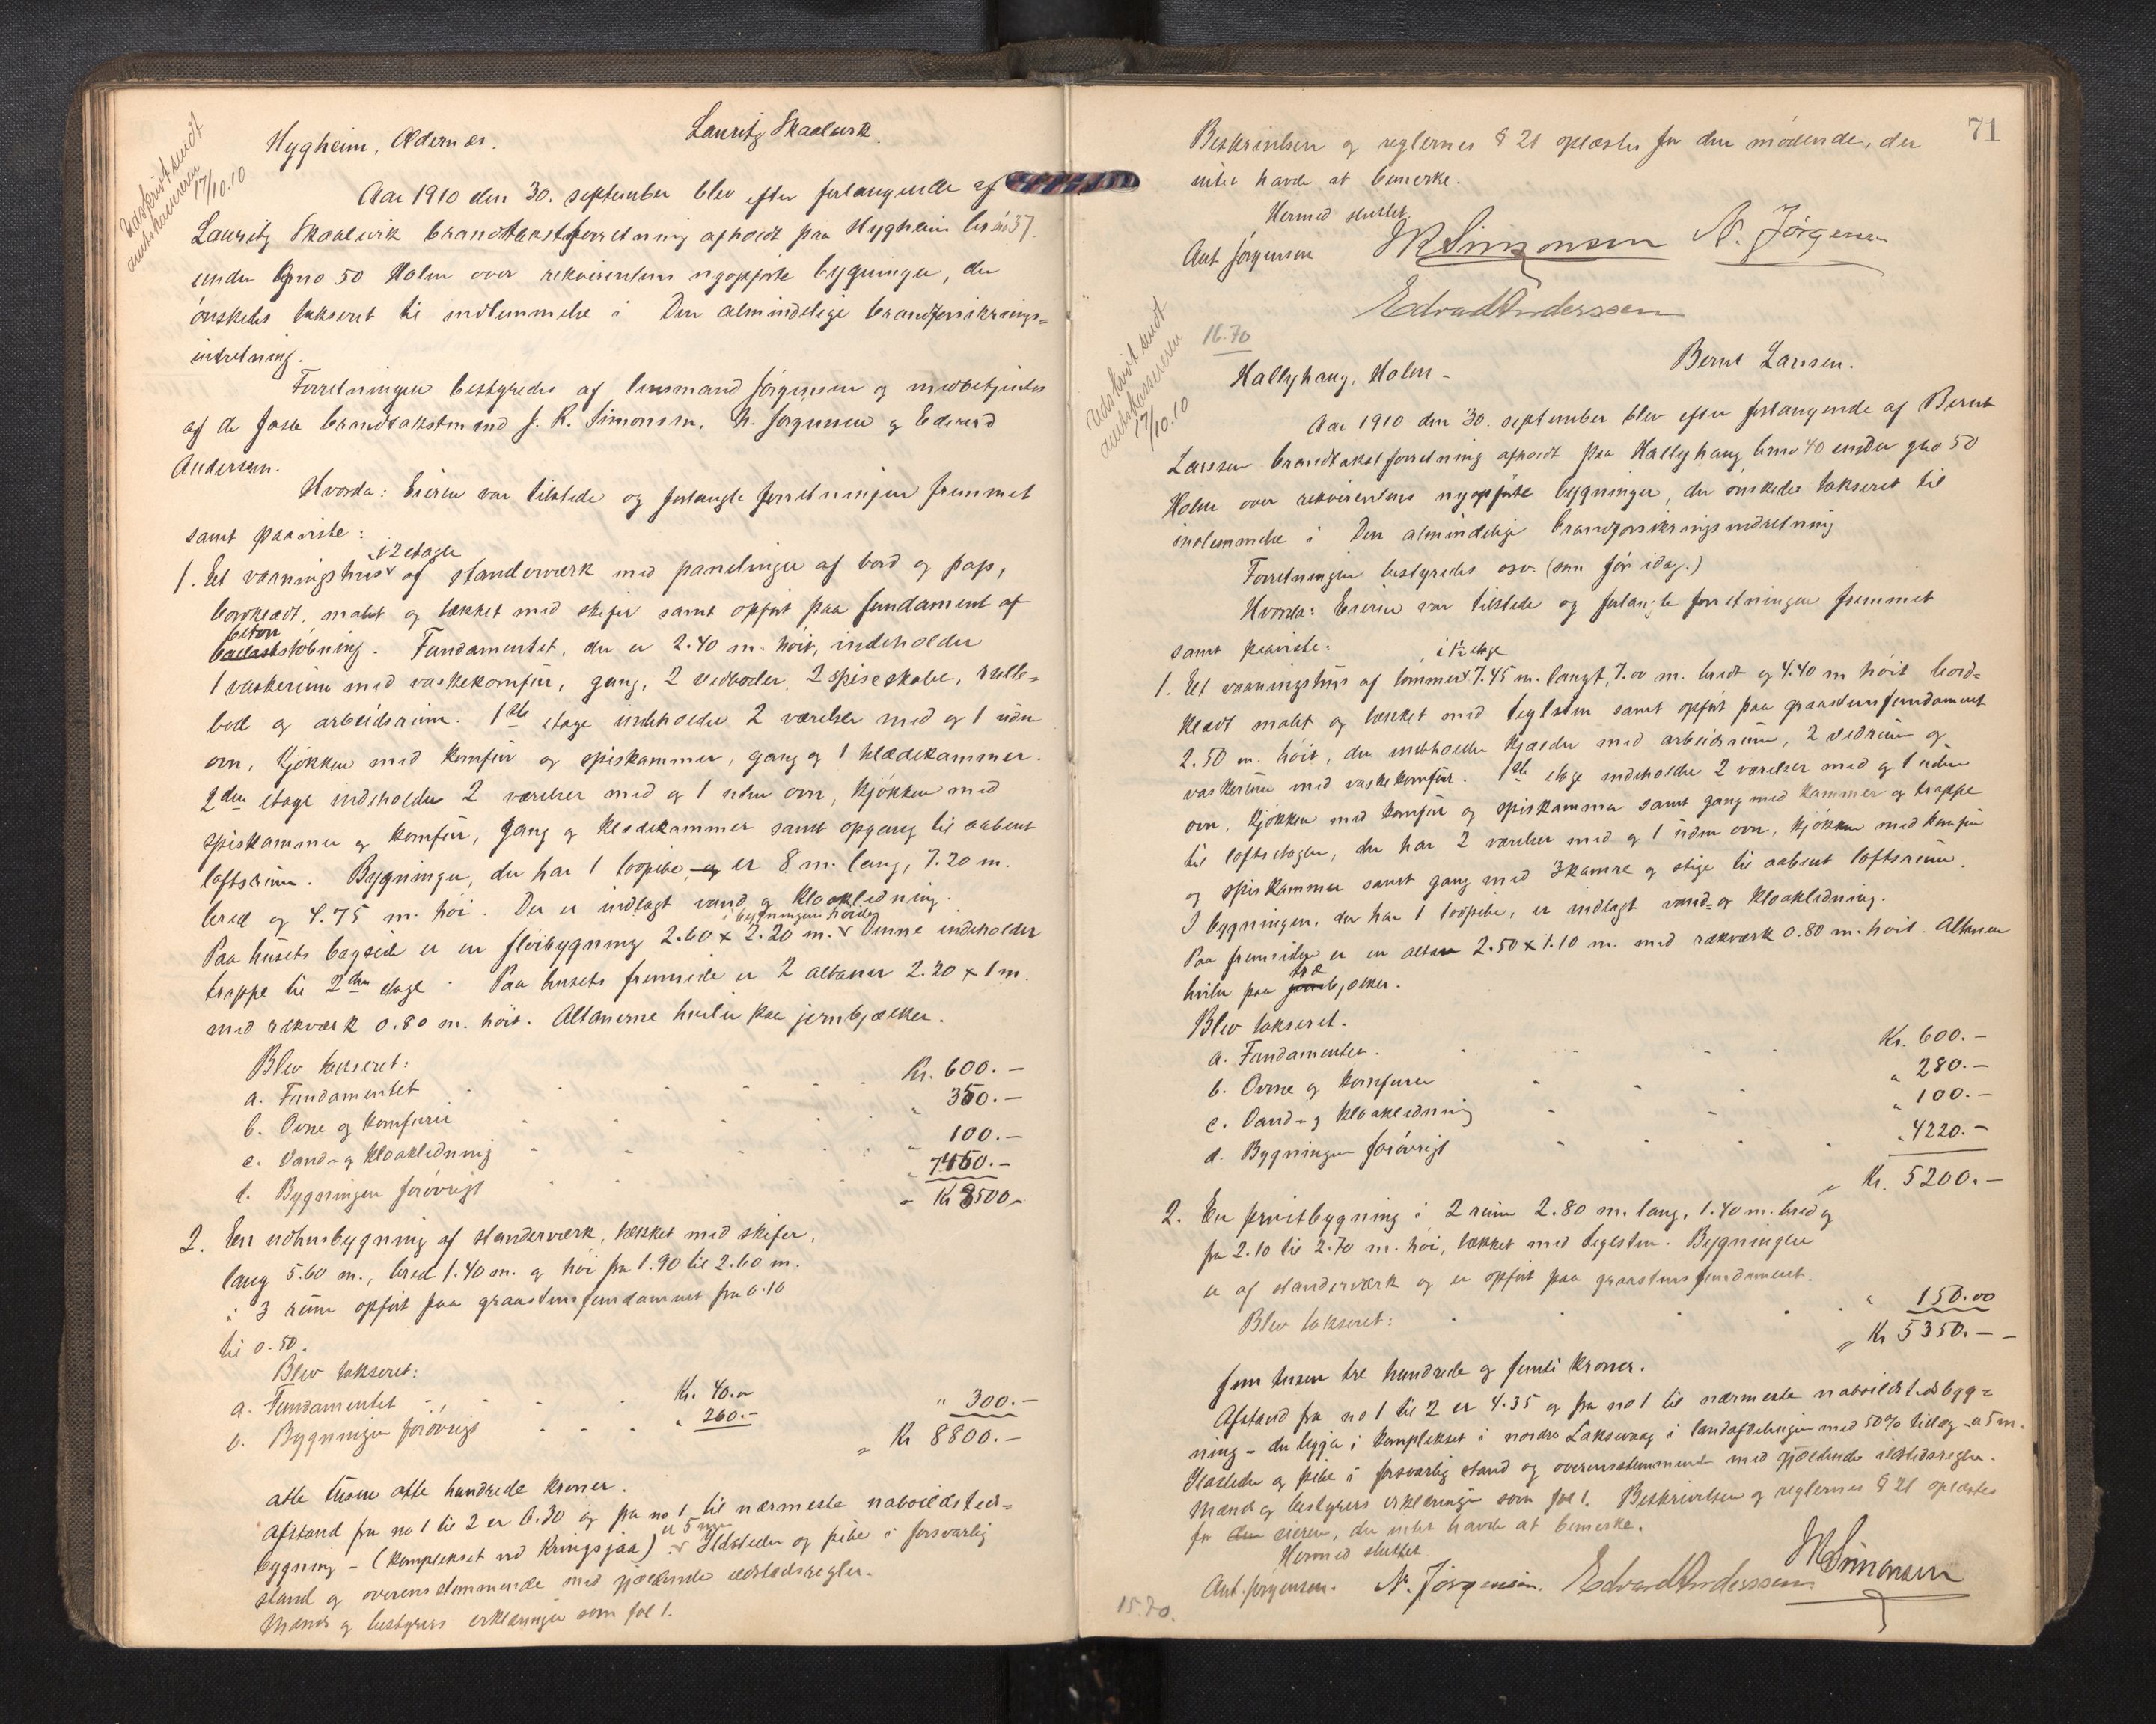 Udskrivt sendt
amtskassereren
17/10.10
Hygheim, Ødernes.
Lauritz Skaalvik
Aar 1910 den 30. september blev efter forlangende af
Lauritz Skaalvik brandtakstforretning afholdt paa Hygheim brno 37
under gno 50 Holm over rekvirentens nyopførte bygninger, der
ønskedes takseret til indlemmelse i Den almindelige brandforsikrings-
indretning.
Forretningen bestyredes af lensmand Jørgensen og medbetjentes
af de faste brandtakstmænd J. R. Simonsen, N. Jørgensen og Edvard
Andersen.
Hvorda: Eieren var tilstede og forlangte forretningen fremmet
samt paaviste:
i 2 etager
1. Et vaaningshus af standerværk med panelinger af bord og pap,
bordklædt, malet og tækket med skifer samt opført paa fundament af
beton
ballaststøbning. Fundamentet, der er 2.40 m. høit, indeholder
1 vaskerum med vaskekomfur, gang, 2 vedboder, 2 spiseskabe, rulle-
bod og arbeidsrum. 1ste etage indeholder 2 værelser med og 1 uden
ovn, kjøkken med komfur og spiskammer, gang og 1 klædekammer.
2den etage indeholder 2 værelser med og 1 uden ovn, kjøkken med
spiskammer og komfur, gang og klædekammer samt opgang til aabent
loftsrum. Bygningen, der har 1 løbpibe, og er 8 m. lang, 7.20 m.
bred og 4.75 m. høi. Der er indlagt vand og kloakledning.
i bygningens høide
Paa husets bagside er en fløibygning 2.60 x 2.20 m. Denne indeholder
trappe til 2den etage. Paa husets fremside er 2 altaner 2.20 x 1 m.
med rækværk 0.80 m. høit. Altanerne hviler paa jernbjælker.
Blev takseret:
a. Fundamentet Kr. 600.-
b. Ovne og komfurer " 350.-
c. Vand- og kloakledning " 100.-
d. Bygningen forøvrigt " 7450.-
Kr 8500.-
2. En udhusbygning af standerværk, tækket med skifer,
lang 5.60 m., bred 1.40 m. og høi fra 1.90 til 2.60 m.
i 3 rum opført paa graastensfundament fra 0.10
til 0.50.
Blev takseret:
a. Fundamentet Kr. 40.00
b. Bygningen forøvrigt " 260.- " 300.-
Kr 8800.-
otte tusen otte hundrede kroner.
Afstand fra no 1 til 2 er 6.30 og fra no 1 til nærmeste naboildsteds-
bygning - (komplekset ved Kringsjaa) er 5 m. Ildsteder og pibe i forsvarlig
stand og overensstemmende med gjældende ildstedsregler.
Mænds og bestyrers erklæringer som fol 1.
71
Beskrivelsen og reglernes § 21 oplæstes for den mødende, der
intet havde at bemerke.
Hermed sluttet.
Ant. Jørgensen JRSimonsen N. Jørgensen
Edvard Anderssen
16.70
Udskrivt sendt
amtskassereren
17/10.10
Hallyhaug, Holm -
Bernt Larsen.
Aar 1910 den 30. september blev efter forlangende af Bernt
Larsen brandtakstforretning afholdt paa Hallyhaug brno 40 under gno 50
Holm over rekvirentens nyopførte bygninger, der ønskedes takseret til
indlemmelse i Den almindelige brandforsikringsindretning
Forretningen bestyredes osv. (som før idag.)
Hvorda: Eieren var tilstede og forlangte forretningen fremmet
samt paaviste:
i 1½ etage
1. Et vaaningshus af tømmer 7.45 m. langt, 7.00 m. bredt og 4.40 m høit bord-
klædt malet og tækket med teglsten samt opført paa graastensfundament
2.50 m. høit, der indeholder kjælder med arbeidsrum, 2 vedrum og
vaskerum med vaskekomfur. 1ste etage indeholder 2 værelser med og 1 uden
ovn, kjøkken med komfur og spiskammer samt gang med kammer og trappe
til loftsetagen, der har 2 værelser med og 1 uden ovn, kjøkken med komfur
og spiskammer samt gang med 3 kamre og stige til aabent loftsrum.
I bygningen, der har 1 løbpibe, er indlagt vand- og kloakledning.
Paa fremsiden er en altan 2.50 x 1.10 m. med rækværk 0.80 m. høit. Altanen
træ
hviler paa jernbjælker.
Blev takseret.
a. Fundamentet. Kr. 600.-
b. Ovne og komfurer " 280.-
c. Vand- og kloakledning " 100.-
d. Bygningen forøvrigt " 4220.-
Kr. 5200.-
2. En privetbygning i 2 rum 2.80 m. lang, 1.40 m. bred og
fra 2.10 til 2.70 m. høi, tækket med teglsten. Bygningen
er af standerværk og er opført paa graastensfundament.
Blev takseret: " 150.00
Kr 5350.-
fem tusen tre hundrede og femti kroner.
Afstand fra no 1 til 2 er 4.35 og fra no 1 til nærmeste naboildstedsbyg-
ning - der ligger i komplekset i nordre Laksevaag i landafdelingen med 50% tillæg - er 5 m.
Ildsteder og pibe i forsvarlig stand og overensstemmende med gjældende ildstedsregler.
Mænds og bestyrers erklæringer som fol 1. Beskrivelsen og reglernes § 21 oplæstes
for den eieren, der intet havde at bemerke.
Hermed sluttet.
Ant. Jørgensen. N. Jørgensen. Edvard Anderssen JRSimonsen
15.70.